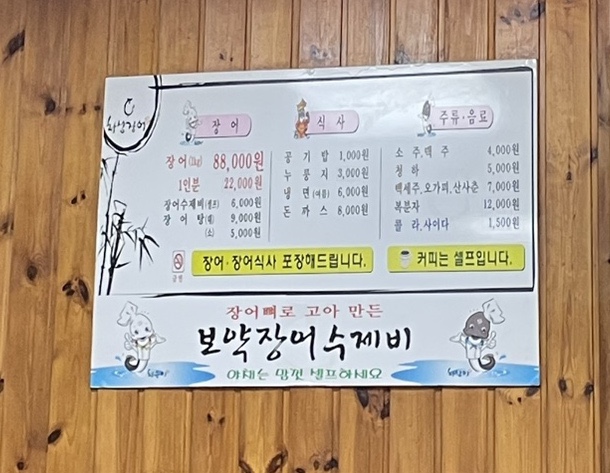 장어
장어(1kg) 88,000원
1인분 22,000원
장어수제비(셀프) 6,000원
장어탕(대) 9,000원
(소) 5,000원
식사
공기밥 1,000원
누룽지 3,000원
냉면(여름) 6,000원
돈까스 8,000원
주류·음료
소주.맥주 4,000원
청하 5,000원
백세주.오가피.산사춘 7,000원
복분자 12,000원
콜라.사이다 1,500원
금연
장어·장어식사 포장해드립니다.
커피는 셀프입니다.
장어뼈로 고아 만든
보약장어수제비
야채는 맘껏 셀프하세요